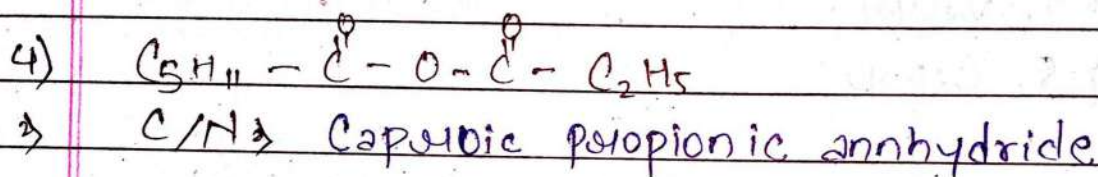 O O
4) C₅H₁₁ - C - O - C - C₂H₅
⇒ C/N⇒ Caproic propionic annhydride